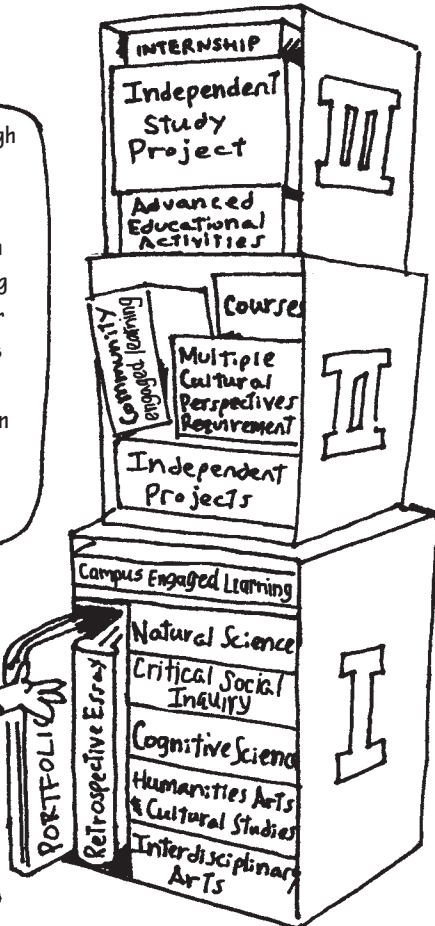 INTERNSHIP
Independent
Study
Project
Advanced
Educational
Activities
III
Community
engaged learning
Courses
Multiple
Cultural
Perspectives
Requirement
Independent
Projects
II
Campus Engaged Learning
Natural Science
Critical Social
Inquiry
Cognitive Scienc
Humanities Arts
& Cultural Studies
Interdisciplinary
Arts
Retrospective Essay
PORTFOLIO
I